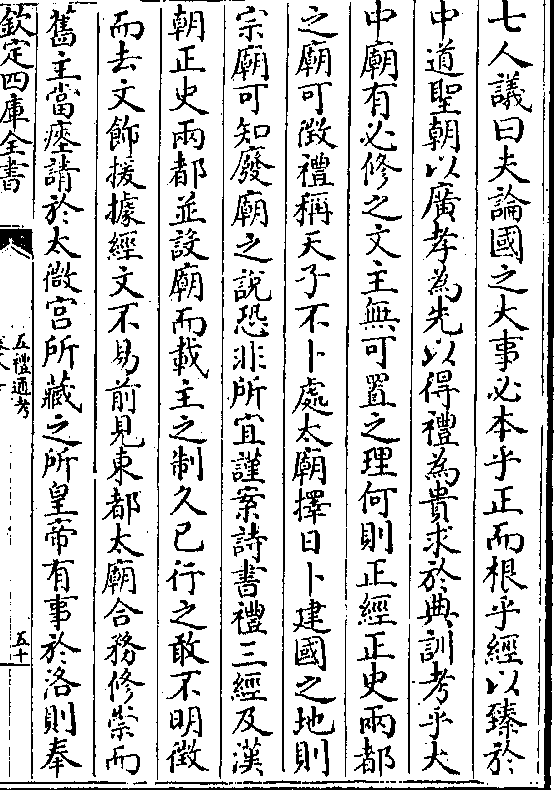 七人議曰夫論國之大事必本乎正而根乎經以臻於
中道聖朝以廣孝為先以得禮為貴求於典訓考乎大
中廟有必修之文主無可置之理何則正經正史兩都
之廟可徵禮稱天子不卜處太廟擇日卜建國之地則
宗廟可知廢廟之說恐非所宜謹案詩書禮三經及漢
朝正史兩都並設廟而載主之制久已行之敢不明徵
而去文飾援據經文不易前見東都太廟合務修崇而
舊主當瘞請於太微宫所藏之所皇帝有事於洛則奉
欽定四庫全書
五禮通考
五十